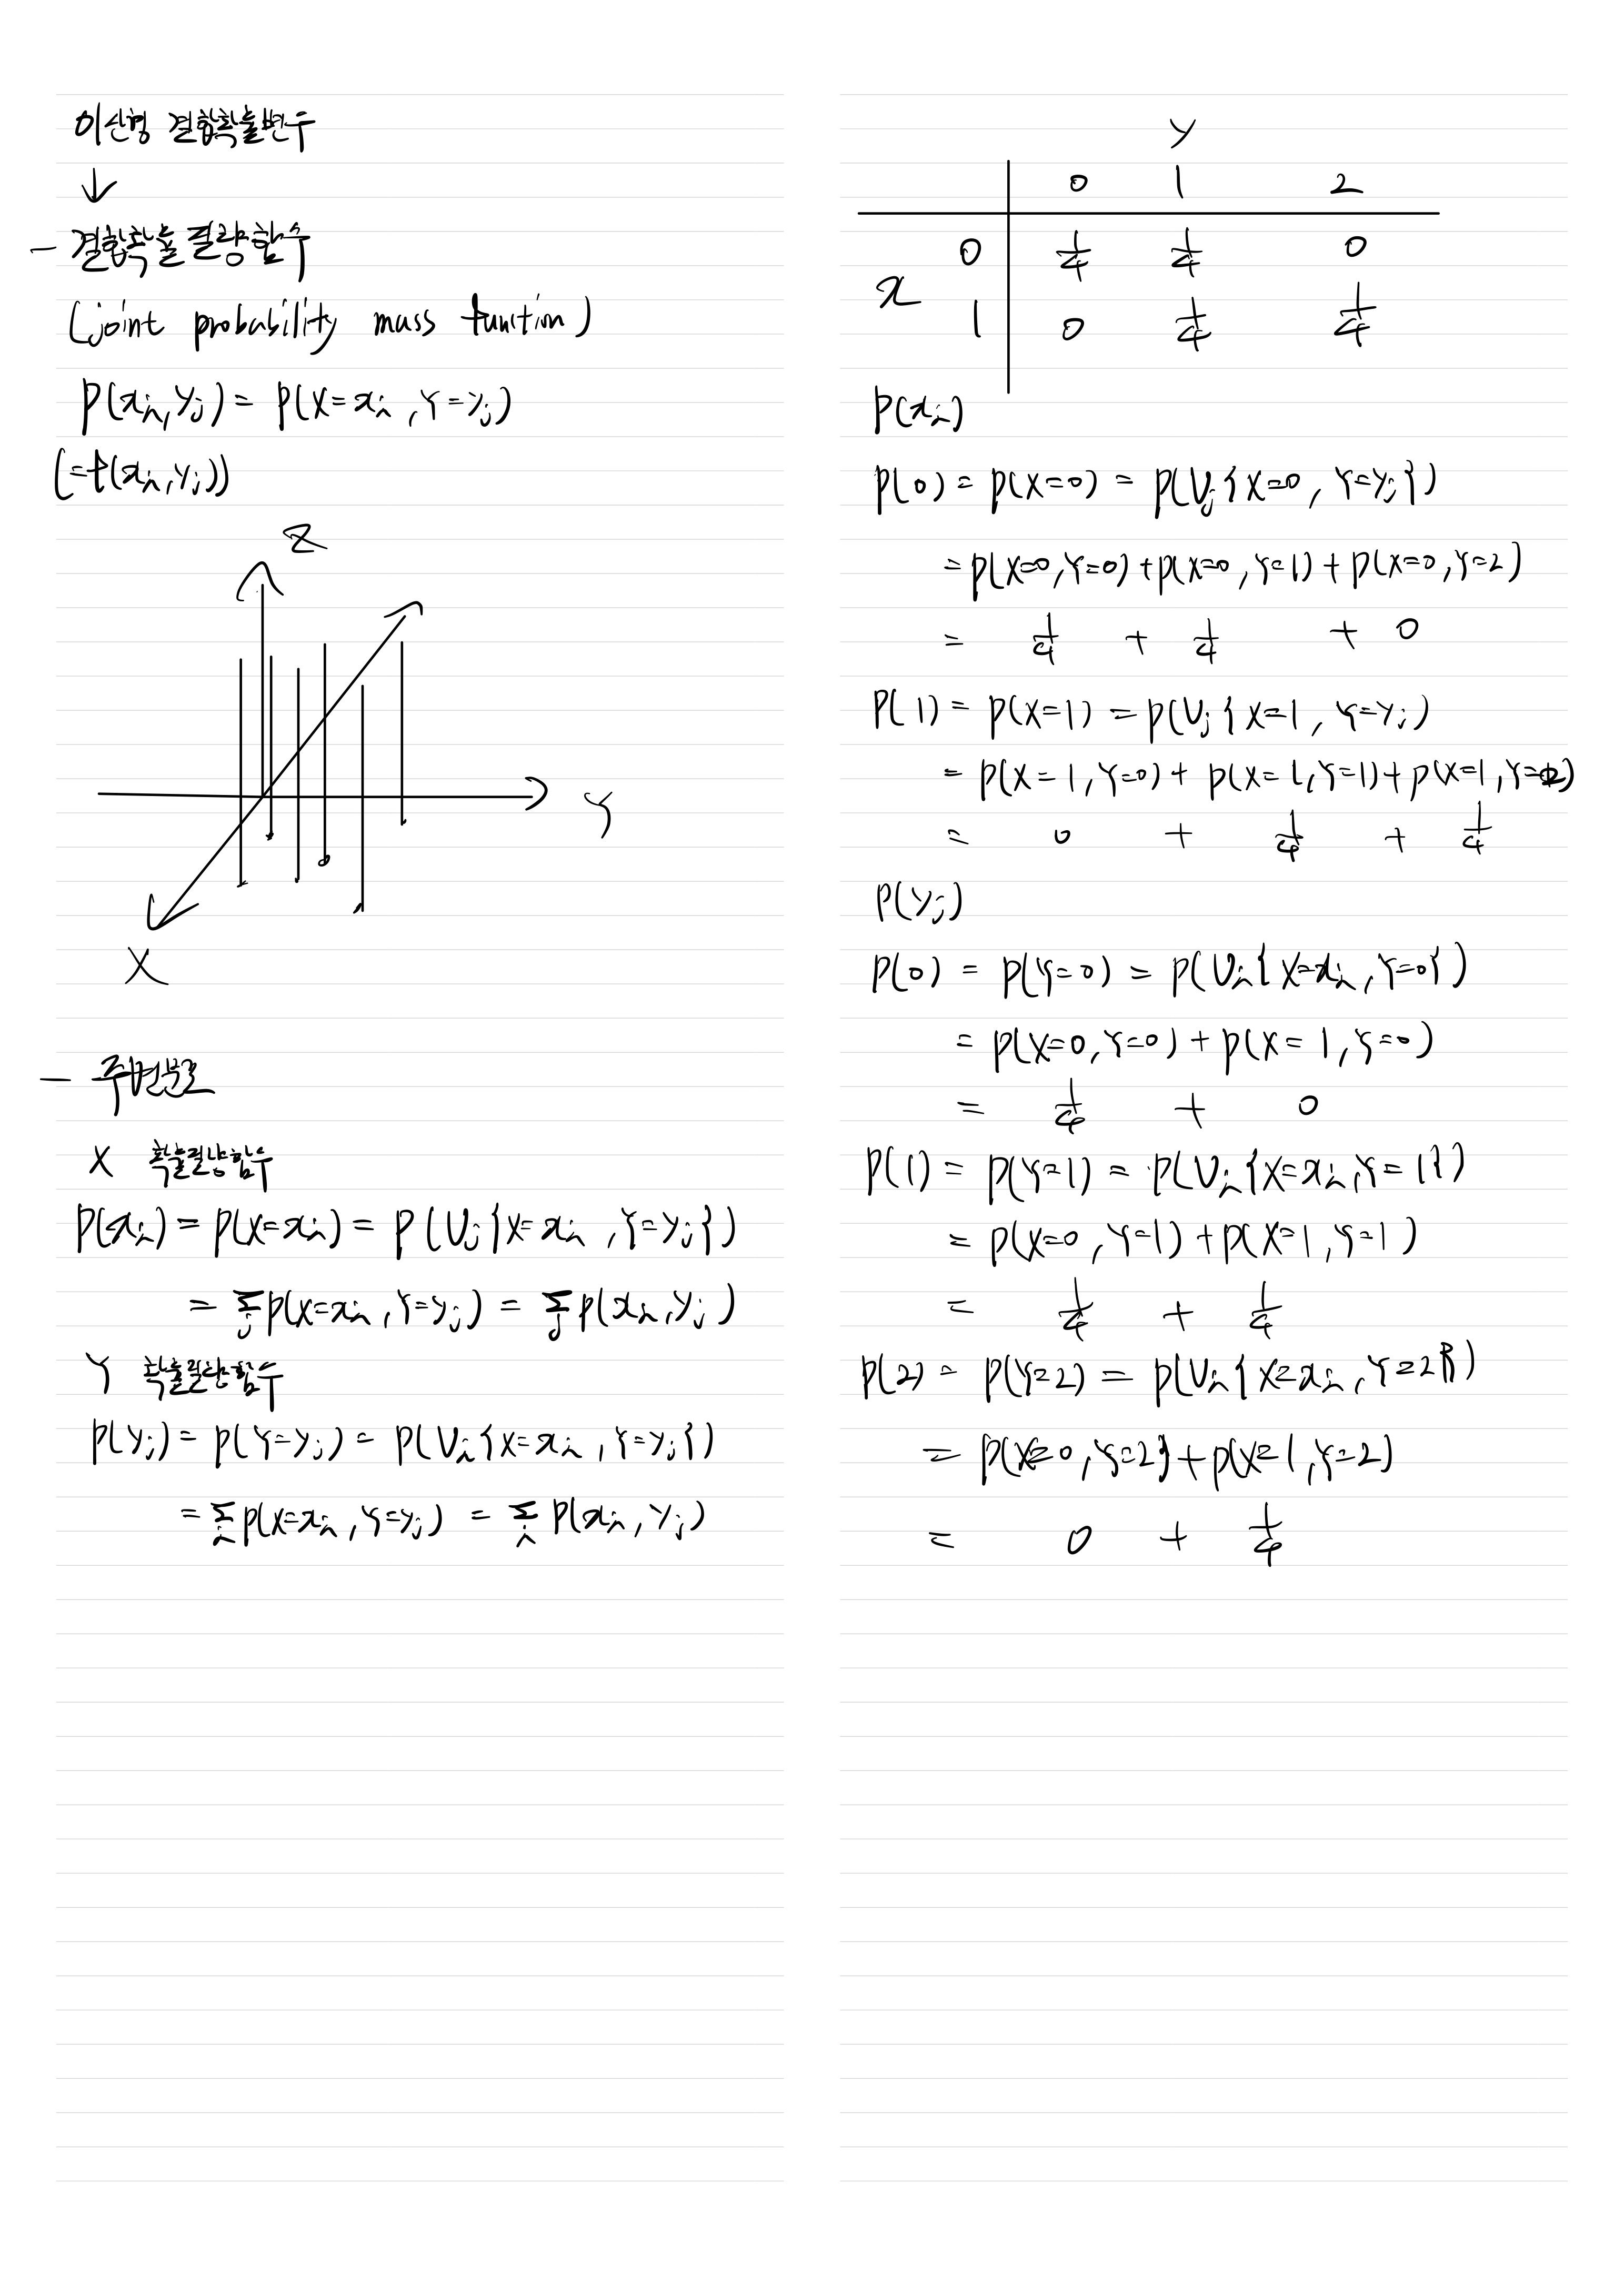 이산형 결합확률변수
↓
- 결합확률질량함수
(joint probability mass function)
P(xi, yj) = P(X=xi, Y=yj)
(=f(xi, yj))
Z
Y
X
- 주변분포
X 확률질량함수
P(xi) = P(X=xi) = P(∪j{X=xi, Y=yj})
= Σj P(X=xi, Y=yj) = Σj P(xi, yj)
Y 확률질량함수
P(yj) = P(Y=yj) = P(∪i{X=xi, Y=yj})
= Σi P(X=xi, Y=yj) = Σi P(xi, yj)
Y
0 1 2
0 1/4 1/4 0
x
1 0 1/4 1/4
P(xi)
P(0) = P(X=0) = P(∪j{X=0, Y=yj})
= P(X=0, Y=0) + P(X=0, Y=1) + P(X=0, Y=2)
= 1/4 + 1/4 + 0
P(1) = P(X=1) = P(∪j{X=1, Y=yj)
= P(X=1, Y=0) + P(X=1, Y=1) + P(X=1, Y=2)
= 0 + 1/4 + 1/4
P(yj)
P(0) = P(Y=0) = P(∪i{X=xi, Y=0})
= P(X=0, Y=0) + P(X=1, Y=0)
= 1/4 + 0
P(1) = P(Y=1) = P(∪i{X=xi, Y=1})
= P(X=0, Y=1) + P(X=1, Y=1)
= 1/4 + 1/4
P(2) = P(Y=2) = P(∪i{X=xi, Y=2})
= P(X=0, Y=2) + P(X=1, Y=2)
= 0 + 1/4